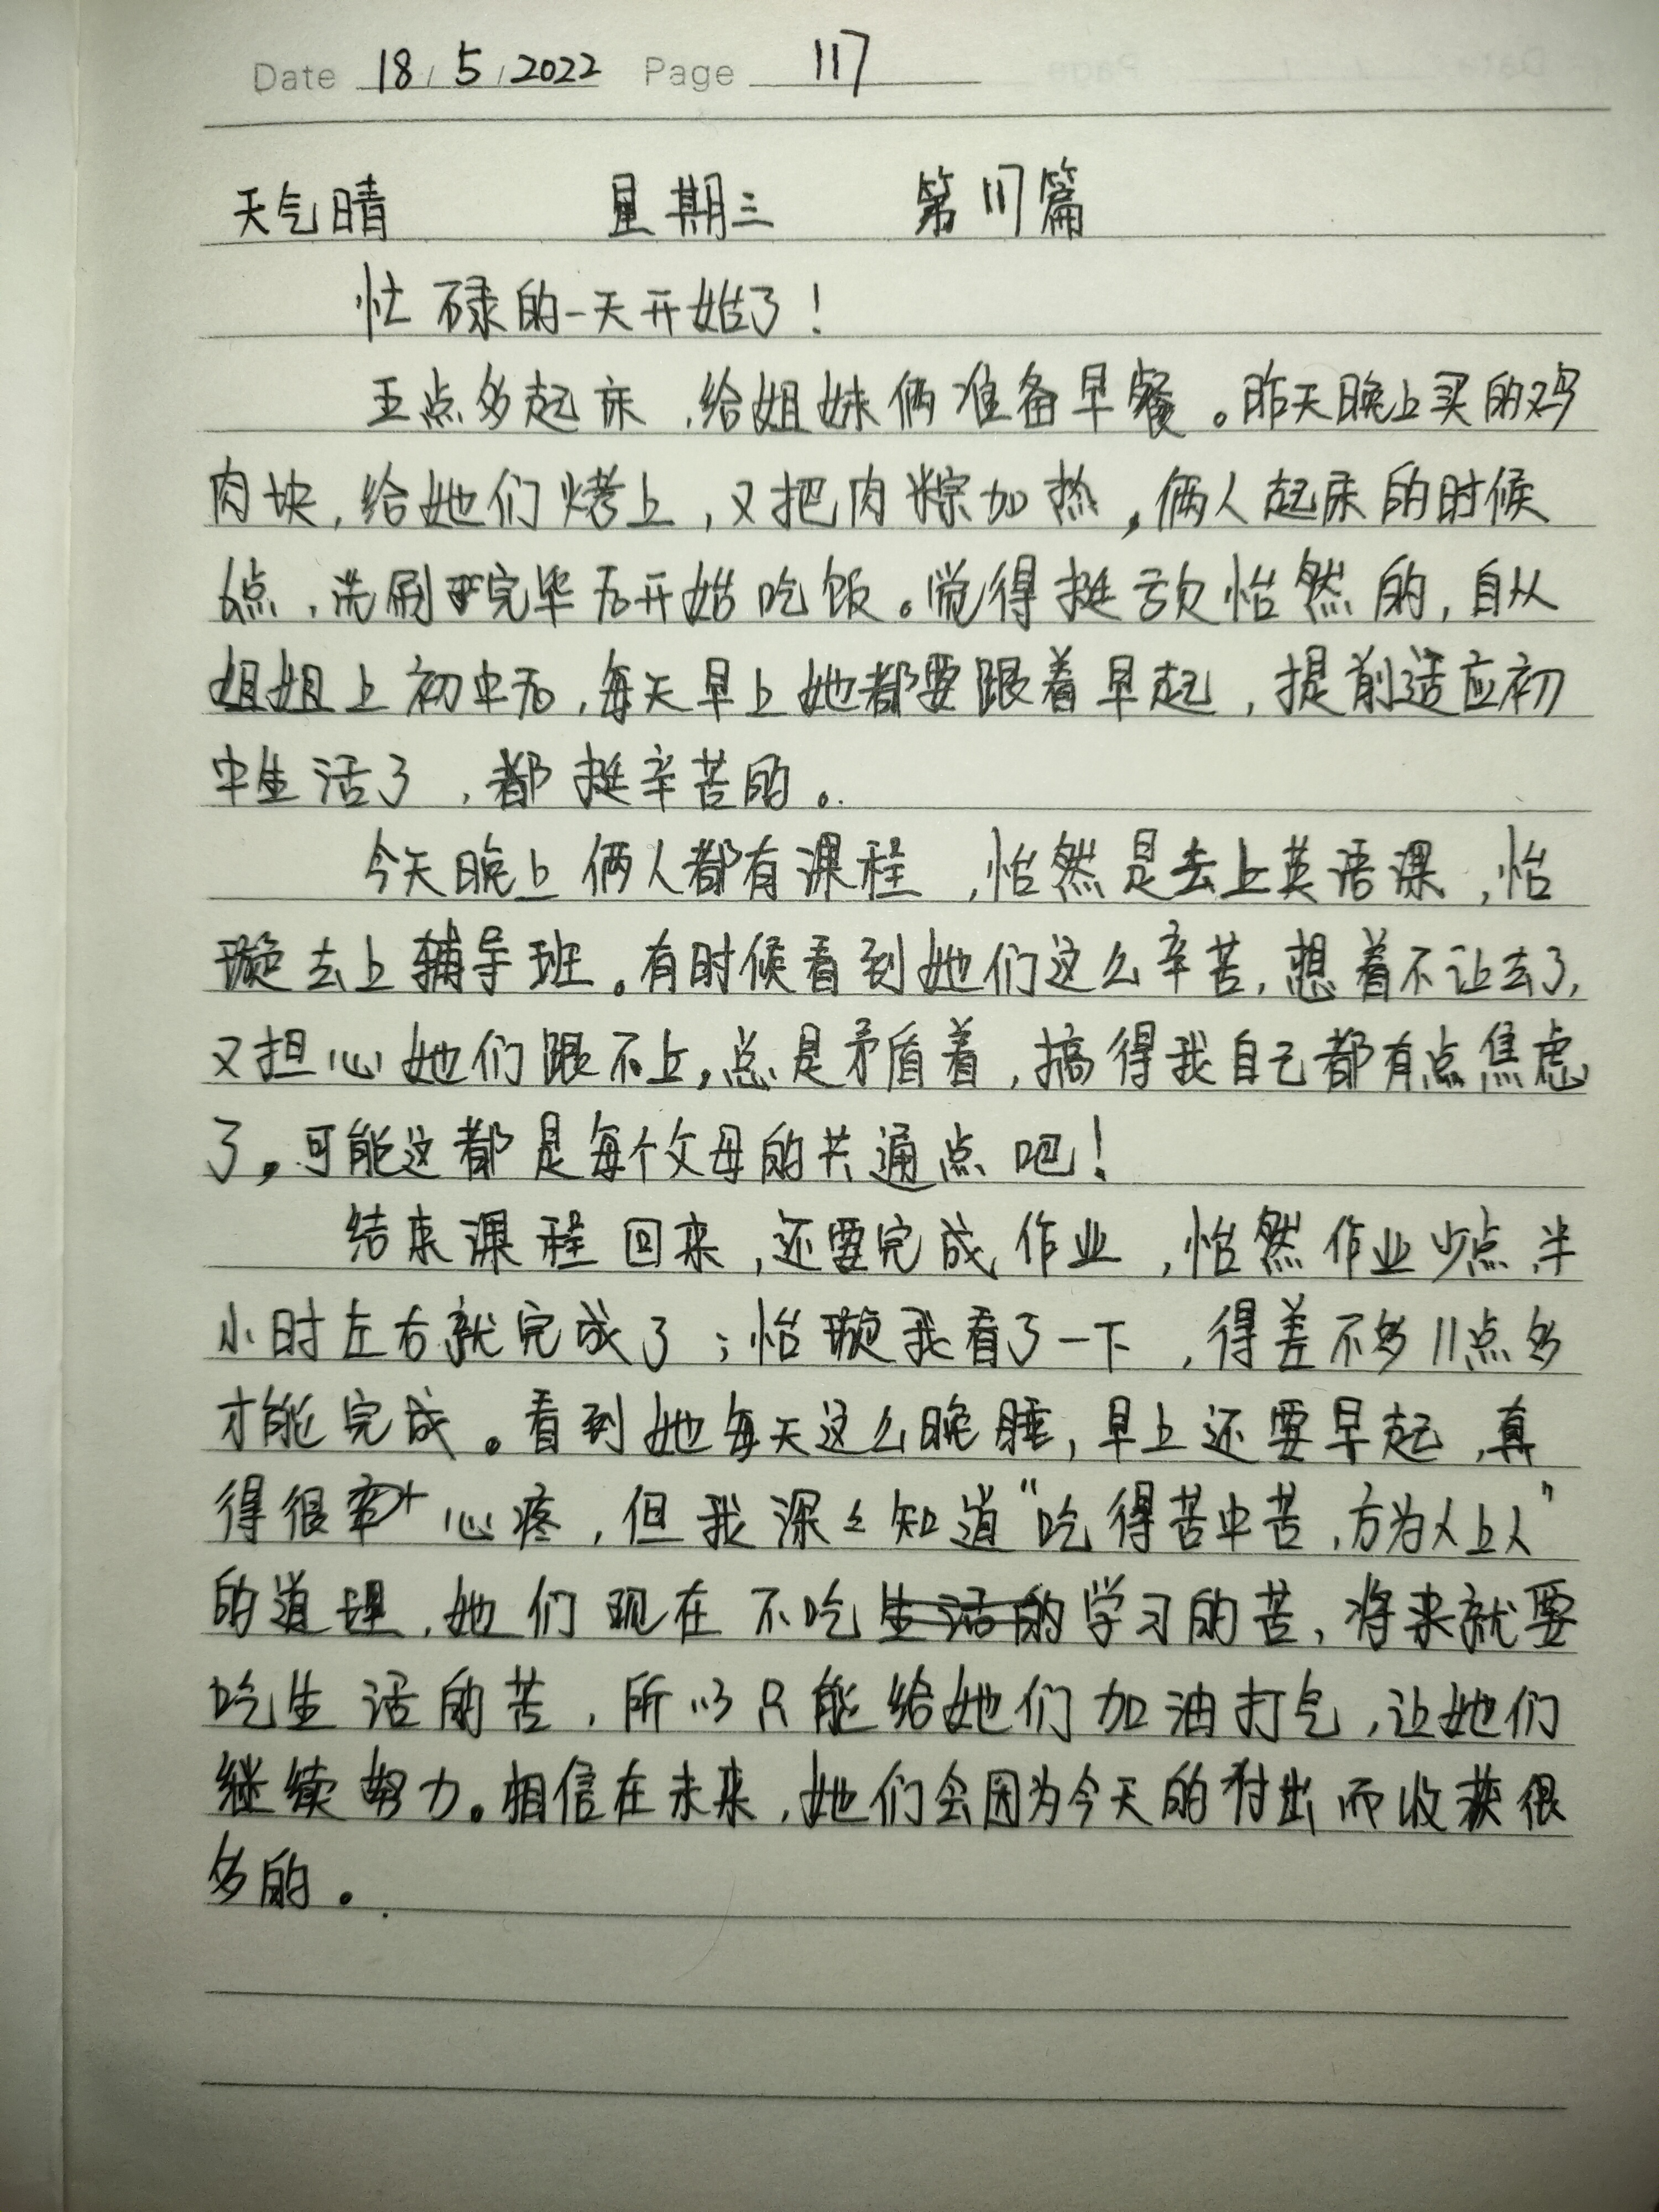 Date 18/5/2022 Page 117
天气晴 星期三 第117篇
忙碌的一天开始了!
五点多起床,给姐妹俩准备早餐。昨天晚上买的鸡
肉块,给她们烤上,又把肉粽加热,俩人起床的时候
6点,洗刷完毕后开始吃饭。觉得挺亏欠怡然的,自从
姐姐上初中后,每天早上她都要跟着早起,提前适应初
中生活了,都挺辛苦的。
今天晚上俩人都有课程,怡然是去上英语课,怡
璇去上辅导班。有时候看到她们这么辛苦,想着不让去了,
又担心她们跟不上,总是矛盾着,搞得我自己都有点焦虑
了。可能这都是每个父母的共通点吧!
结束课程回来,还要完成作业,怡然作业少点,半
小时左右就完成了;怡璇我看了一下,得差不多11点多
才能完成。看到她每天这么晚睡,早上还要早起,真
得很心疼,但我深々知道“吃得苦中苦,方为人上人”
的道理,她们现在不吃生活的学习的苦,将来就要
吃生活的苦,所以只能给她们加油打气,让她们
继续努力。相信在未来,她们会因为今天的付出而收获很
多的。